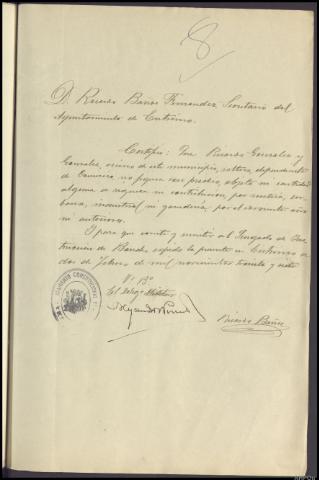 8
D. Ricardo Baños Fernandez, Secretario del
Ayuntamiento de Entrimo.
Certifico: Que Ricardo Gonzalez y
Gonzalez, vecino de este municipio, soltero, dependiente
de Comercio, no figura con predio, objeto ni cantidad
alguna a requisar ni contribucion, por rustica, ur-
bana, industrial ni ganaderia por el corriente año
ni anteriores.
Y para que conste y remitir al Juzgado de Ins-
truccion de Bande, expido la presente en Entrimo a
dos de de mil novecientos treinta y siete
Vº Bº
El
Ricardo Baños